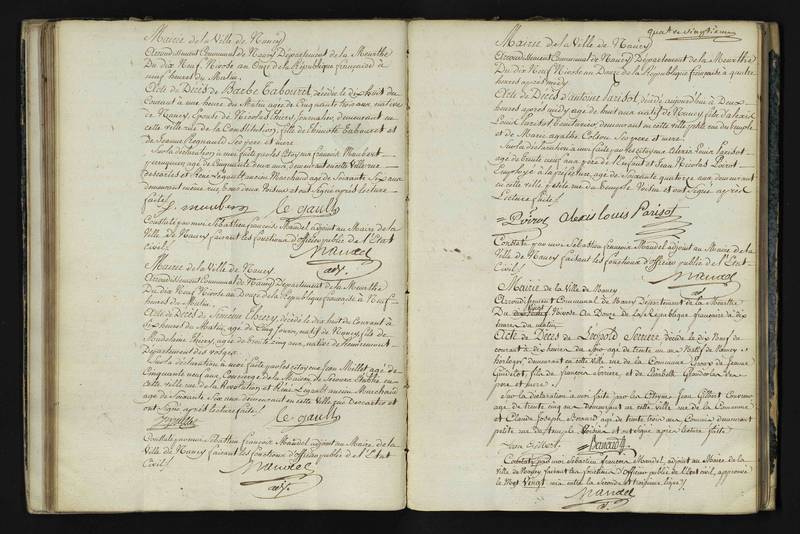 Mairie de la Ville de Nancy
Arrondissement Communal de Nancy Département de la Meurthe
Du dix Neuf Nivose an Douze de la République française à
neuf heures du Matin
Acte de Décès de Barbe Tabouret, décédée le dix huit du
Courant à une heure du Matin agée de Cinquante trois ans native
de Nancy Epouse de Nicolas Thiery Journalier, demeurant en
cette ville rue de la Constitution, fille de Tabouret et
de Jeanne Regnauld Ses pere et mere
Sur la déclaration à moi faite par les Citoyens françois
perruquier, agé de Cinquante deux ans demeurant en cette Ville rue
Descartes et Réné Legault ancien Marchand agé de Soixante Six ans
demeurant même rue, tous deux Voisins et ont Signé après Lecture
faite /.
le gault
Constaté par moi Sébastien François Mandel adjoint au Maire de la
Ville de Nancy faisant les fonctions d'officier public de l'Etat
Civil /.
Mandel
adj.
Mairie de la Ville de Nancy
Arrondissement Communal de Nancy Département de la Meurthe
Du dix Neuf Nivose an Douze de la République française à Neuf
heures du Matin
Acte de Décès de Simeon Thiery, décédé le dix huit du Courant à
dix heures du Matin, agé de Cinq Jours, natif de Nancy, fils de
Magdelaine Thiery, agée de trente cinq ans, native de
Département des Vosges
Sur la déclaration à moi faite par les citoyens Jean Millet agé de
Cinquante neuf ans, Concierge de la Maison de Secours Etablie en
cette ville rue de la Révolution et Réné Legault ancien Marchand
agé de Soixante Six ans demeurant en cette Ville rue Descartes et
ont Signé après Lecture faite /.
le gault
Constaté par moi Sébastien françois Mandel adjoint au Maire de la
Ville de Nancy faisant les fonctions d'officier public de l'Etat
Civil /.
Mandel
adj.
Mairie de la Ville de Nancy
Arrondissement Communal de Nancy Département de la Meurthe
Du dix Neuf Nivose an Douze de la République française à quatre
heures après midy
Acte de Décès d'antoine Parisot, décédé aujourd'hui à Deux
heures après midy agé de huit ans natif de Nancy fils d'alexis
Louis Parisot demeurant en cette ville rue du temple
et de Marie agathe Ses pere et mere
Sur la déclaration à moi faite par les Citoyens Alexis Louis Parisot
agé de trente neuf ans pere de l'Enfant et Jean Nicolas Poirot
Employé à la préfecture, agé de Soixante quatorze ans demeurant
en cette ville rue du temple Voisin et ont Signé après
Lecture faite /.
Poirot alexis Louis Parisot
Constaté par moi Sébastien françois Mandel adjoint au Maire de la
Ville de Nancy faisant les fonctions d'officier public de l'Etat
Civil /.
Mandel
adj.
Mairie de la Ville de Nancy
Arrondissement Communal de Nancy Département de la Meurthe
Du Vingt Nivose An Douze de la République française à dix
heures du matin
Acte de Décès de Léopold Serriere décédé le dix Neuf du
courant à dix heures du Soir agé de trente un ans Natif de Nancy
horloger demeurant en cette Ville rue de la Commune Epoux de Jeanne
fils de francois Serriere et de Elisabeth Ses
pere et mere /.
Sur la déclaration à moi faite par les Citoyens Jean Gilbert
agé de trente cinq ans demeurant en cette ville rue de la Commune
et Claude Joseph Bernard agé de trente trois ans Commis demeurant
Voisins et ont signé après lecture faite
Jean Gilbert Bernard
Constaté par moi Sébastien françois Mandel, adjoint au Maire de la
Ville de Nancy faisant les fonctions d'officier public de l'Etat civil, approuvé
le Mot Vingt mis entre la Seconde et troisieme ligne /.
Mandel
a.